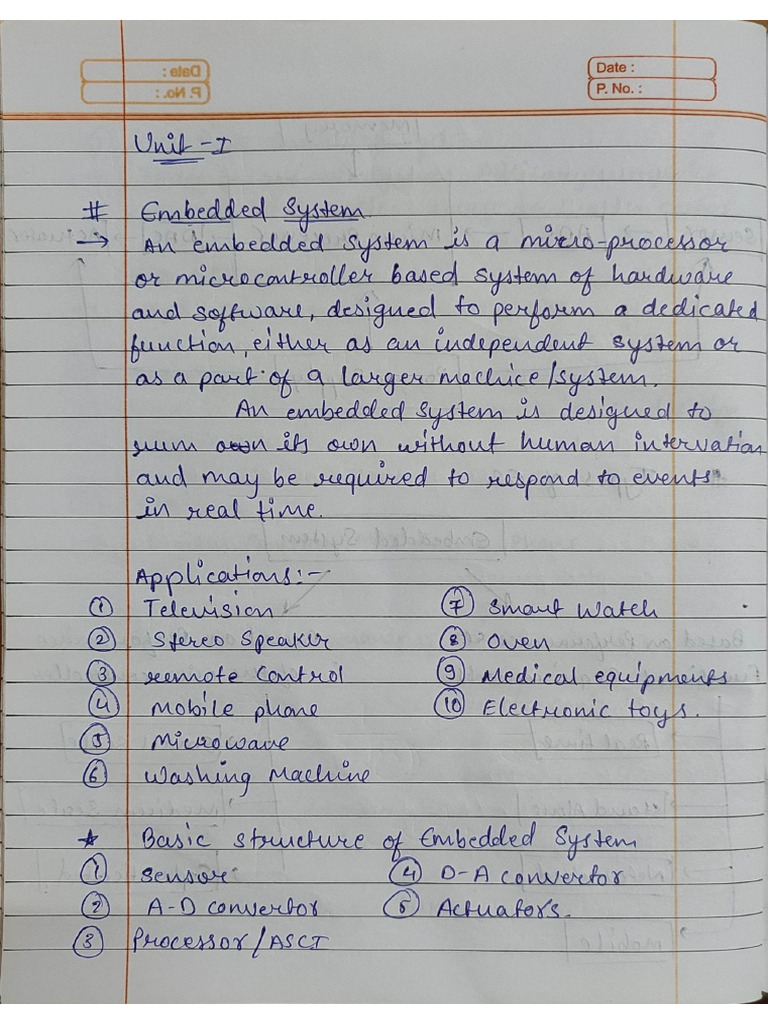 Date :
P. No. :
Unit - I
# Embedded System
→ An embedded system is a micro-processor
or microcontroller based system of hardware
and software, designed to perform a dedicated
function, either as an independent system or
as a part of a larger machice/system.
An embedded system is designed to
run own its own without human intervation
and may be required to respond to events
in real time.
Applications :-
① Television
② Stereo Speaker
③ remote Control
④ mobile phone
⑤ Microwave
⑥ Washing Machine
⑦ Smart Watch
⑧ Oven
⑨ Medical equipments
⑩ Electronic toys.
★ Basic structure of Embedded System
① Sensor
② A-D convertor
③ Processor/ASCI
④ D-A convertor
⑤ Actuators.